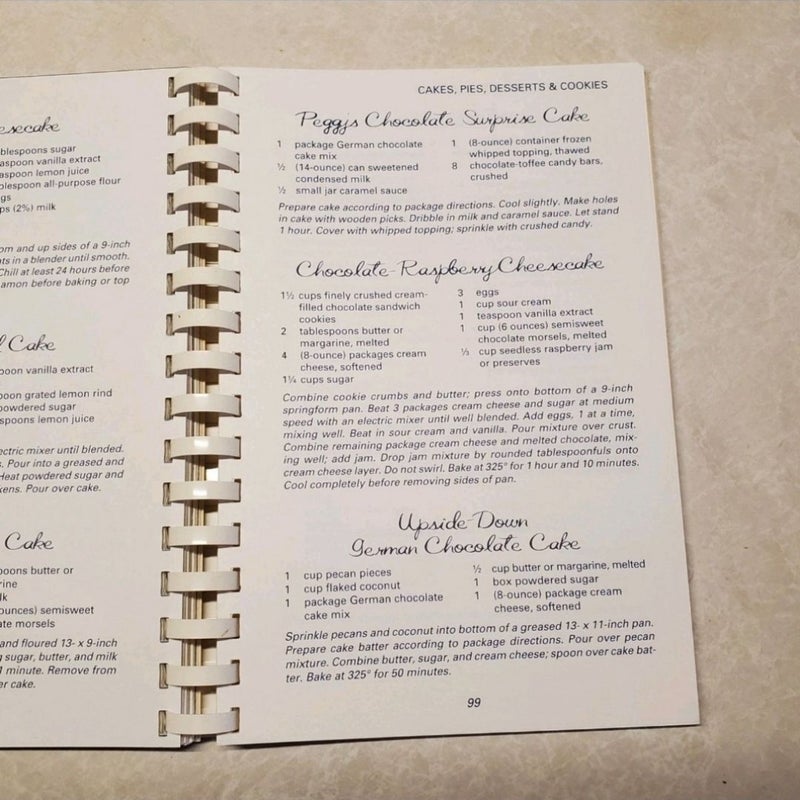 esecake
blespoons sugar
aspoon vanilla extract
aspoon lemon juice
blespoon all-purpose flour
gs
ps (2%) milk
om and up sides of a 9-inch
ats in a blender until smooth.
Chill at least 24 hours before
amon before baking or top
l Cake
poon vanilla extract
poon grated lemon rind
powdered sugar
spoons lemon juice
ectric mixer until blended.
s. Pour into a greased and
Heat powdered sugar and
kens. Pour over cake.
Cake
poons butter or
rine
lk
ounces) semisweet
ate morsels
and floured 13- x 9-inch
g sugar, butter, and milk
1 minute. Remove from
er cake.
CAKES, PIES, DESSERTS & COOKIES
Peggy's Chocolate Surprise Cake
1 package German chocolate
cake mix
½ (14-ounce) can sweetened
condensed milk
½ small jar caramel sauce
1 (8-ounce) container frozen
whipped topping, thawed
8 chocolate-toffee candy bars,
crushed
Prepare cake according to package directions. Cool slightly. Make holes
in cake with wooden picks. Dribble in milk and caramel sauce. Let stand
1 hour. Cover with whipped topping; sprinkle with crushed candy.
Chocolate-Raspberry Cheesecake
1½ cups finely crushed cream-
filled chocolate sandwich
cookies
2 tablespoons butter or
margarine, melted
4 (8-ounce) packages cream
cheese, softened
1¼ cups sugar
3 eggs
1 cup sour cream
1 teaspoon vanilla extract
1 cup (6 ounces) semisweet
chocolate morsels, melted
⅓ cup seedless raspberry jam
or preserves
Combine cookie crumbs and butter; press onto bottom of a 9-inch
springform pan. Beat 3 packages cream cheese and sugar at medium
speed with an electric mixer until well blended. Add eggs, 1 at a time,
mixing well. Beat in sour cream and vanilla. Pour mixture over crust.
Combine remaining package cream cheese and melted chocolate, mix-
ing well; add jam. Drop jam mixture by rounded tablespoonfuls onto
cream cheese layer. Do not swirl. Bake at 325° for 1 hour and 10 minutes.
Cool completely before removing sides of pan.
Upside-Down
German Chocolate Cake
1 cup pecan pieces
1 cup flaked coconut
1 package German chocolate
cake mix
½ cup butter or margarine, melted
1 box powdered sugar
1 (8-ounce) package cream
cheese, softened
Sprinkle pecans and coconut into bottom of a greased 13- x 11-inch pan.
Prepare cake batter according to package directions. Pour over pecan
mixture. Combine butter, sugar, and cream cheese; spoon over cake bat-
ter. Bake at 325° for 50 minutes.
99